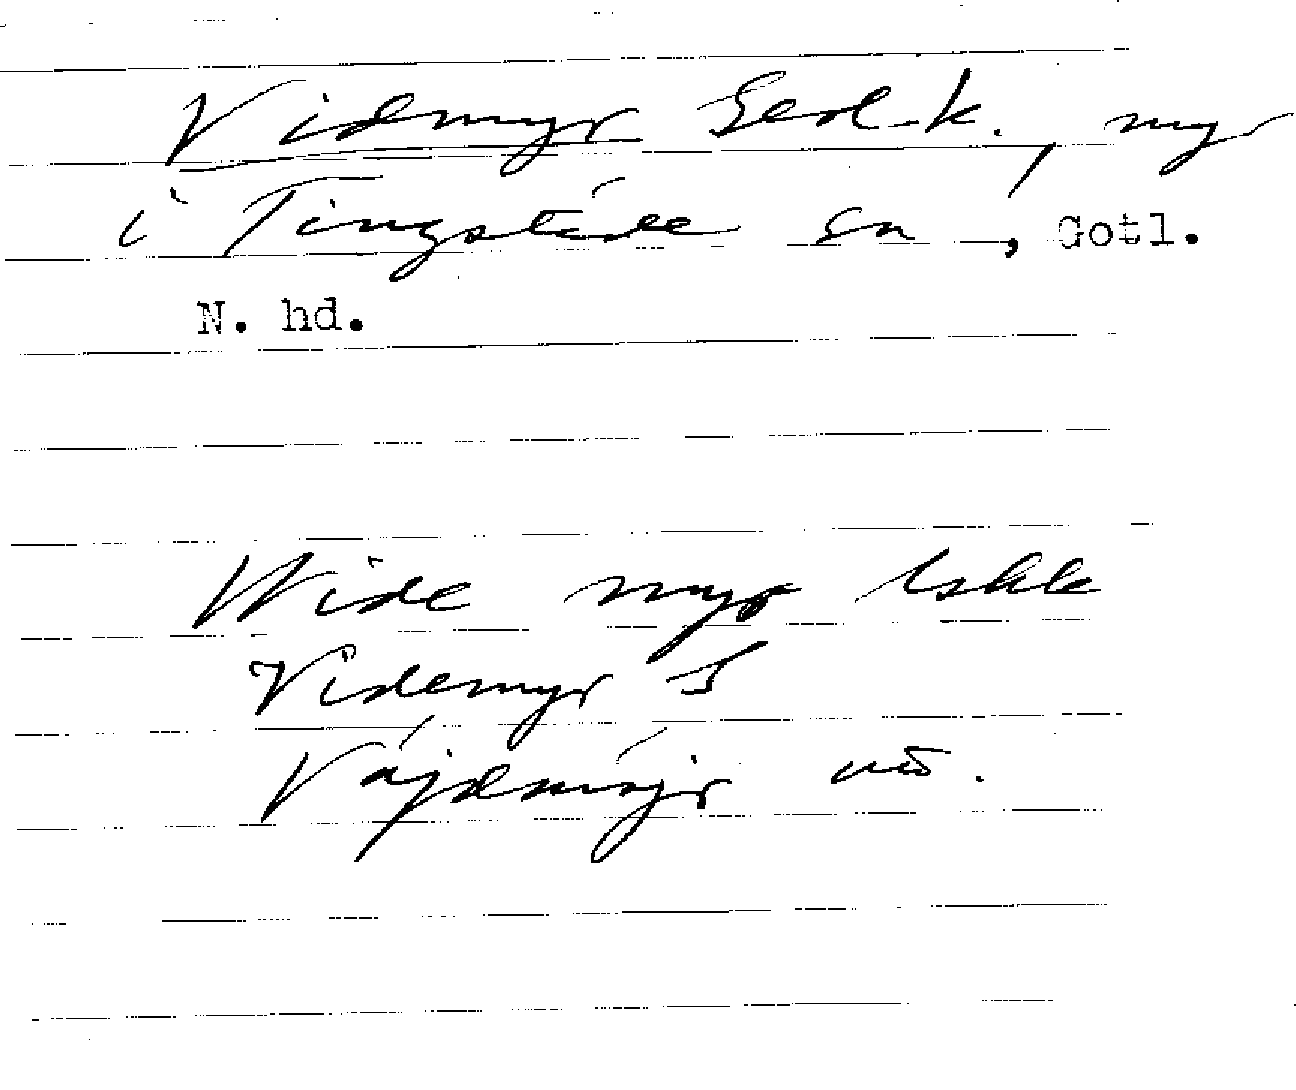 Vidmyr Geol.k., my
i Tingstäde sn, Gotl.
N. hd.
Wide myr lskk
Videmyr S
Vájdmýr